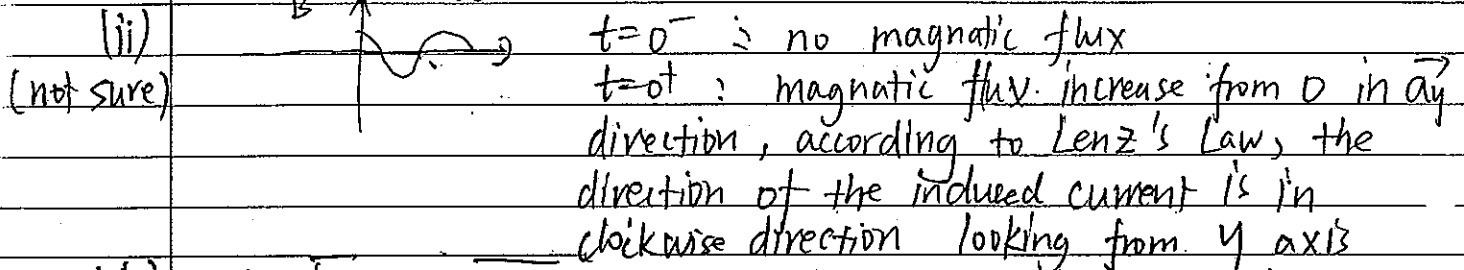 (ii) B t=0⁻ : no magnatic flux
(not sure) t=0⁺ : magnatic flux increase from 0 in a⃗y
direction, according to Lenz's Law, the
direction of the induced current is in
clockwise direction looking from y axis